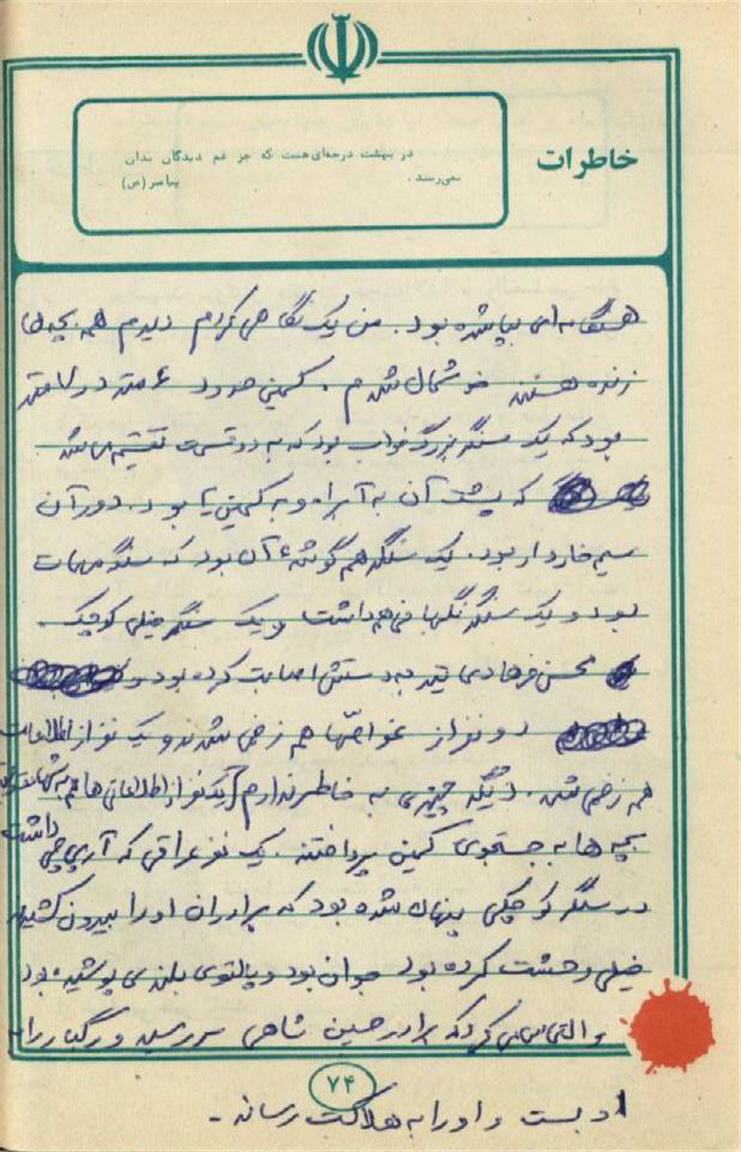 خاطرات
در بهشت درجه‌ای هست که جز غم دیدگان بدان
نمی‌رسند .
پیامبر (ص)
هنگامه‌ای بپا شده بود. من یک نگاهی کردم دیدم همه بچه‌ها
زنده هستند خوشحال شدم . کمین حدود ۶ متر در ۷ متر
بود که یک سنگر بزرگ خواب بود که به دو قسمت تقسیم می‌شد
که پشت آن به آبراه و به کمین یا بود. دور آن
سیم خاردار بود. یک سنگر هم گوشهٔ آن بود که سنگر مهمات
بود و یک سنگر نگهبانی هم داشت و یک سنگر خیلی کوچک .
محسن فرهادی تیر به دستش اصابت کرده بود و
دو نفر از غواصها هم زخمی شدند و یک نفر از اطلاعات
هم زخمی شد. دیگر چیزی به خاطر ندارم [یک نفر از اطلاعاتی‌ها هم به شهادت
بچه‌ها به جستجوی کمین پرداختند. یک نفر عراقی که آرپی‌جی داشت
در سنگر کوچکی پنهان شده بود که برادران او را بیرون کشیدند
خیلی وحشت کرده بود جوان بود و پالتوی بلندی پوشیده بود
و التماس می‌کرد که برادر حسین شاهی سر رسید و رگبار را به
۷۴
او بست و او را به هلاکت رساند .